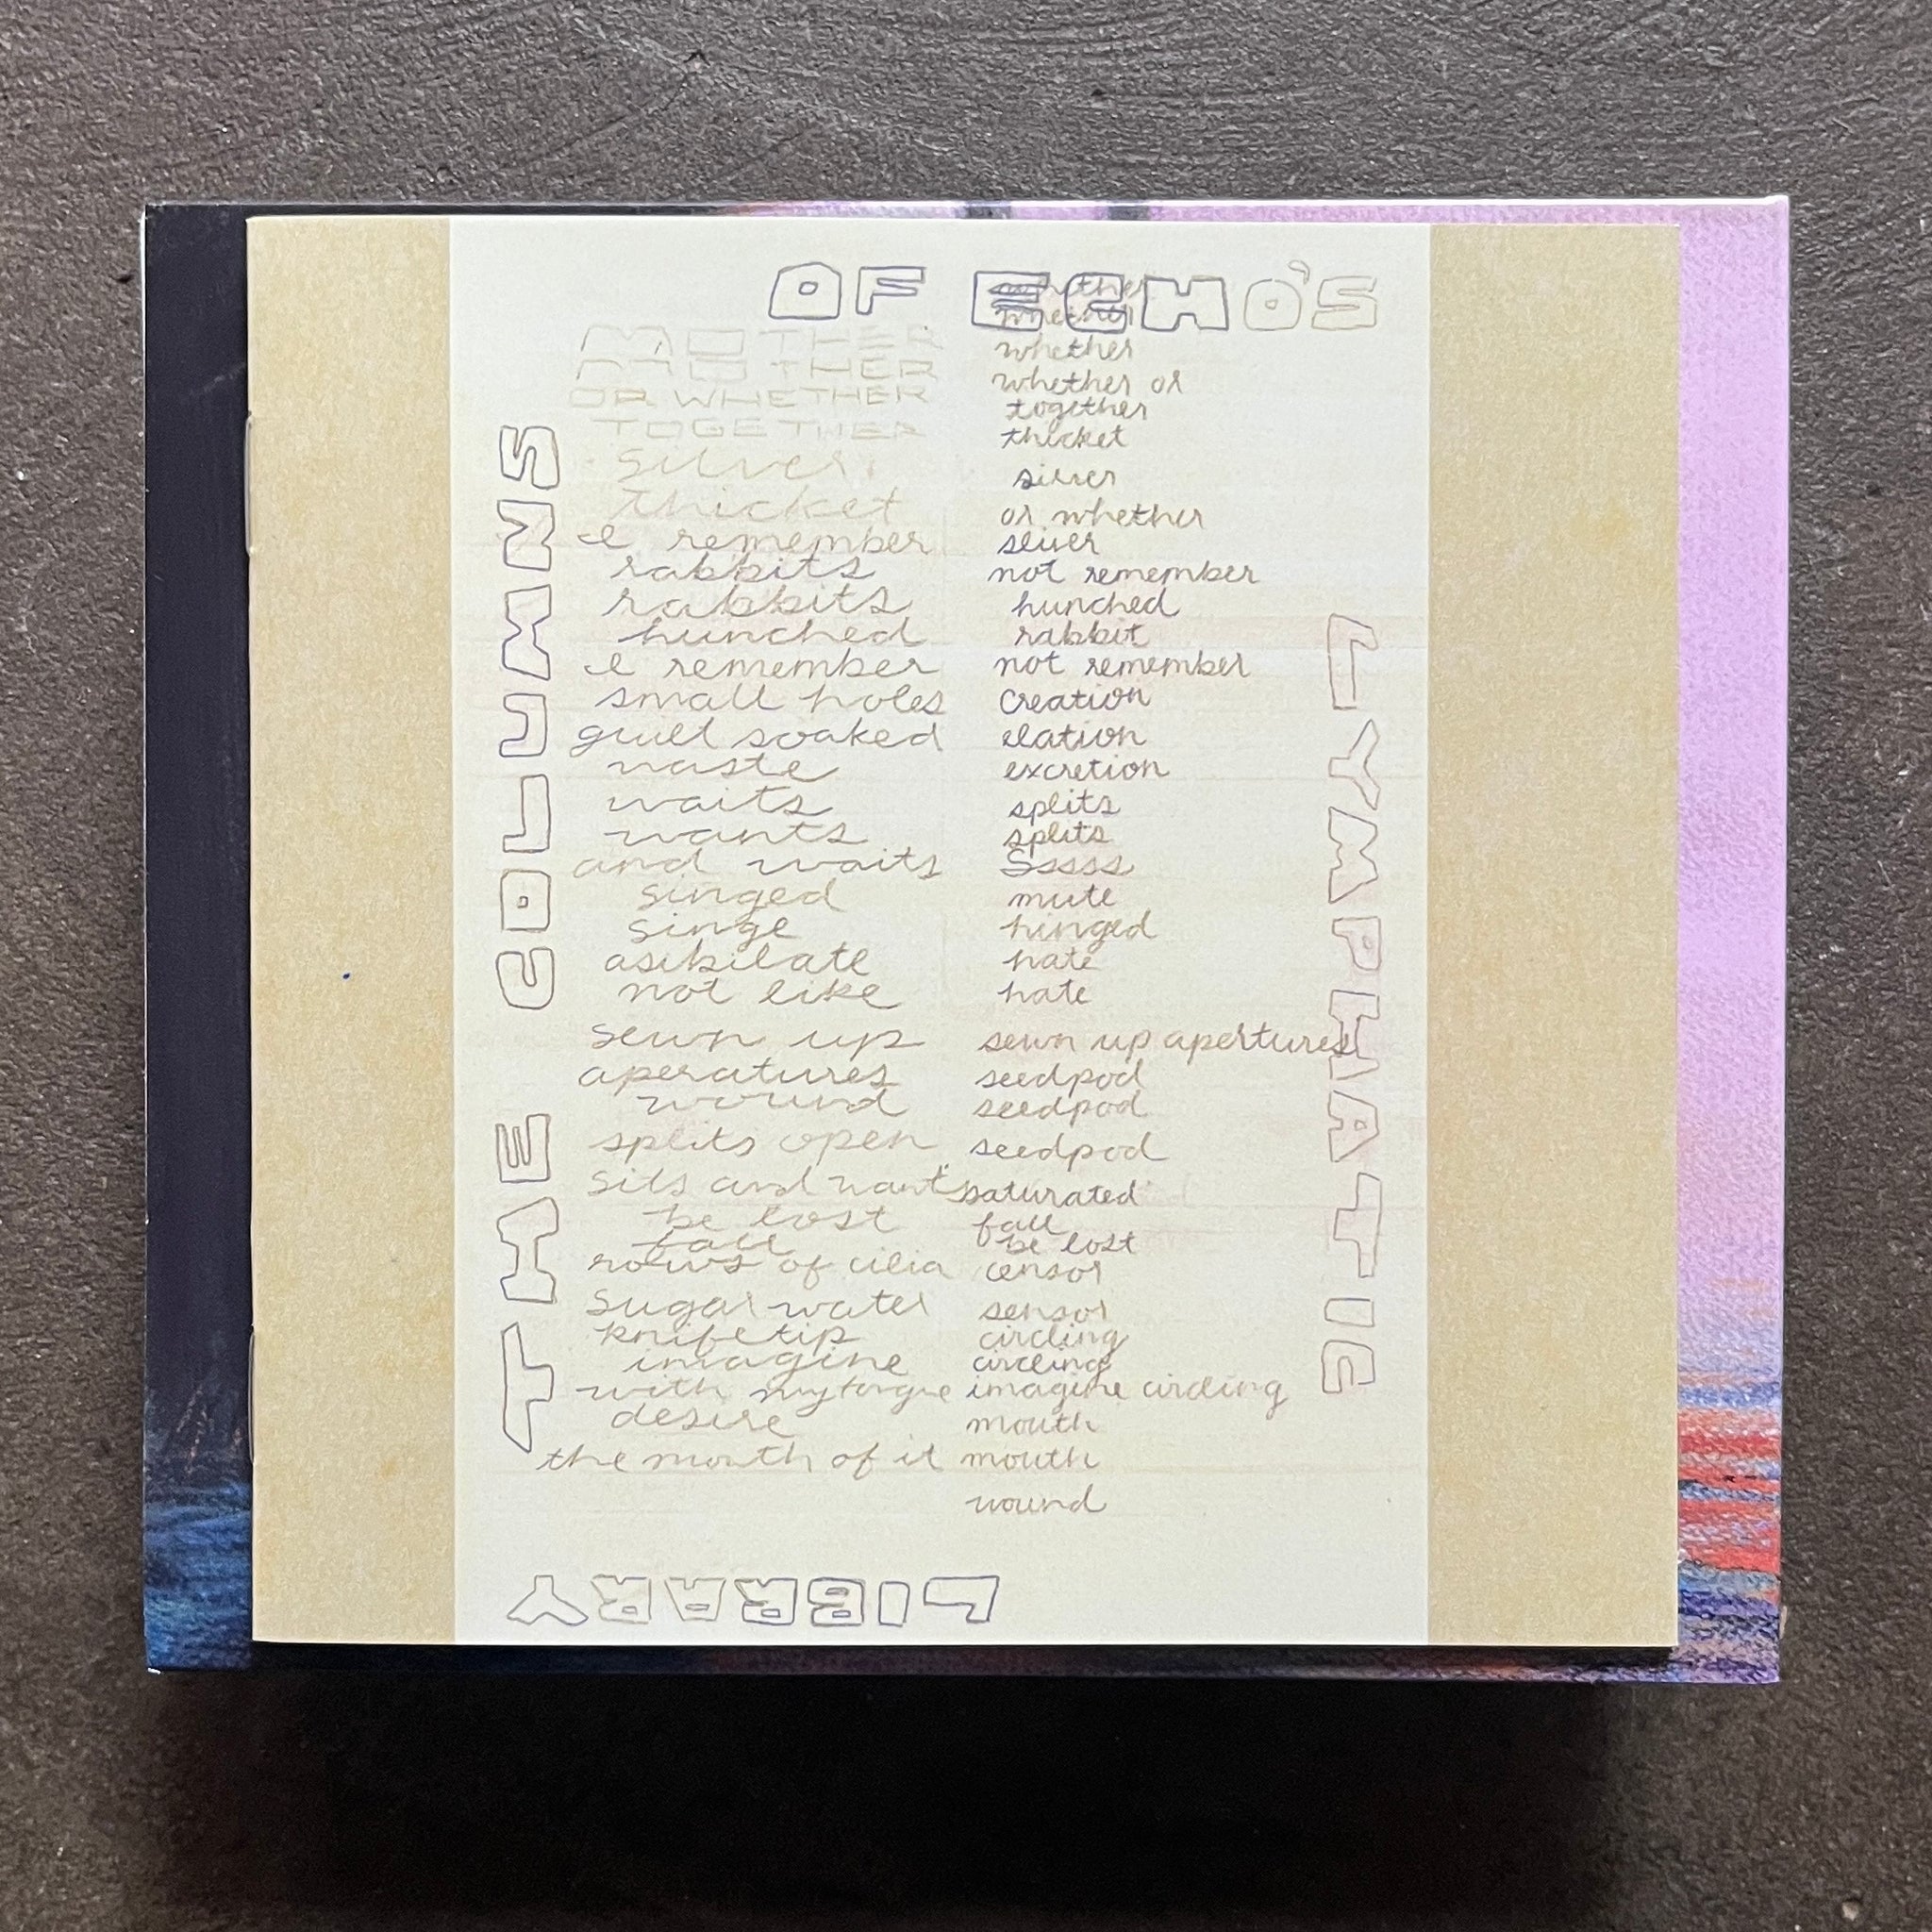 THE COLUMNS
OF ECHO'S
LYMPHATIC
LIBRARY
MOTHER
MOTHER
OR WHETHER
TOGETHER
silver
thicket
I remember
rabbits
rabbits
hunched
I remember
small holes
guilt soaked
waste
waits
wants
and waits
singed
singe
asibilate
not like
sewn up
aperatures
wound
splits open
sits and wants
be lost
fall
rows of cilia
sugar water
knifetip
imagine
with my tongue
desire
the mouth of it
whether
whether
whether
whether or
together
thicket
silver
or whether
sliver
not remember
hunched
rabbit
not remember
creation
elation
excretion
splits
splits
Sssss
mute
hinged
hate
hate
sewn up apertures
seedpod
seedpod
seedpod
saturated
fall
be lost
censor
sensor
circling
circling
imagine circling
mouth
mouth
wound